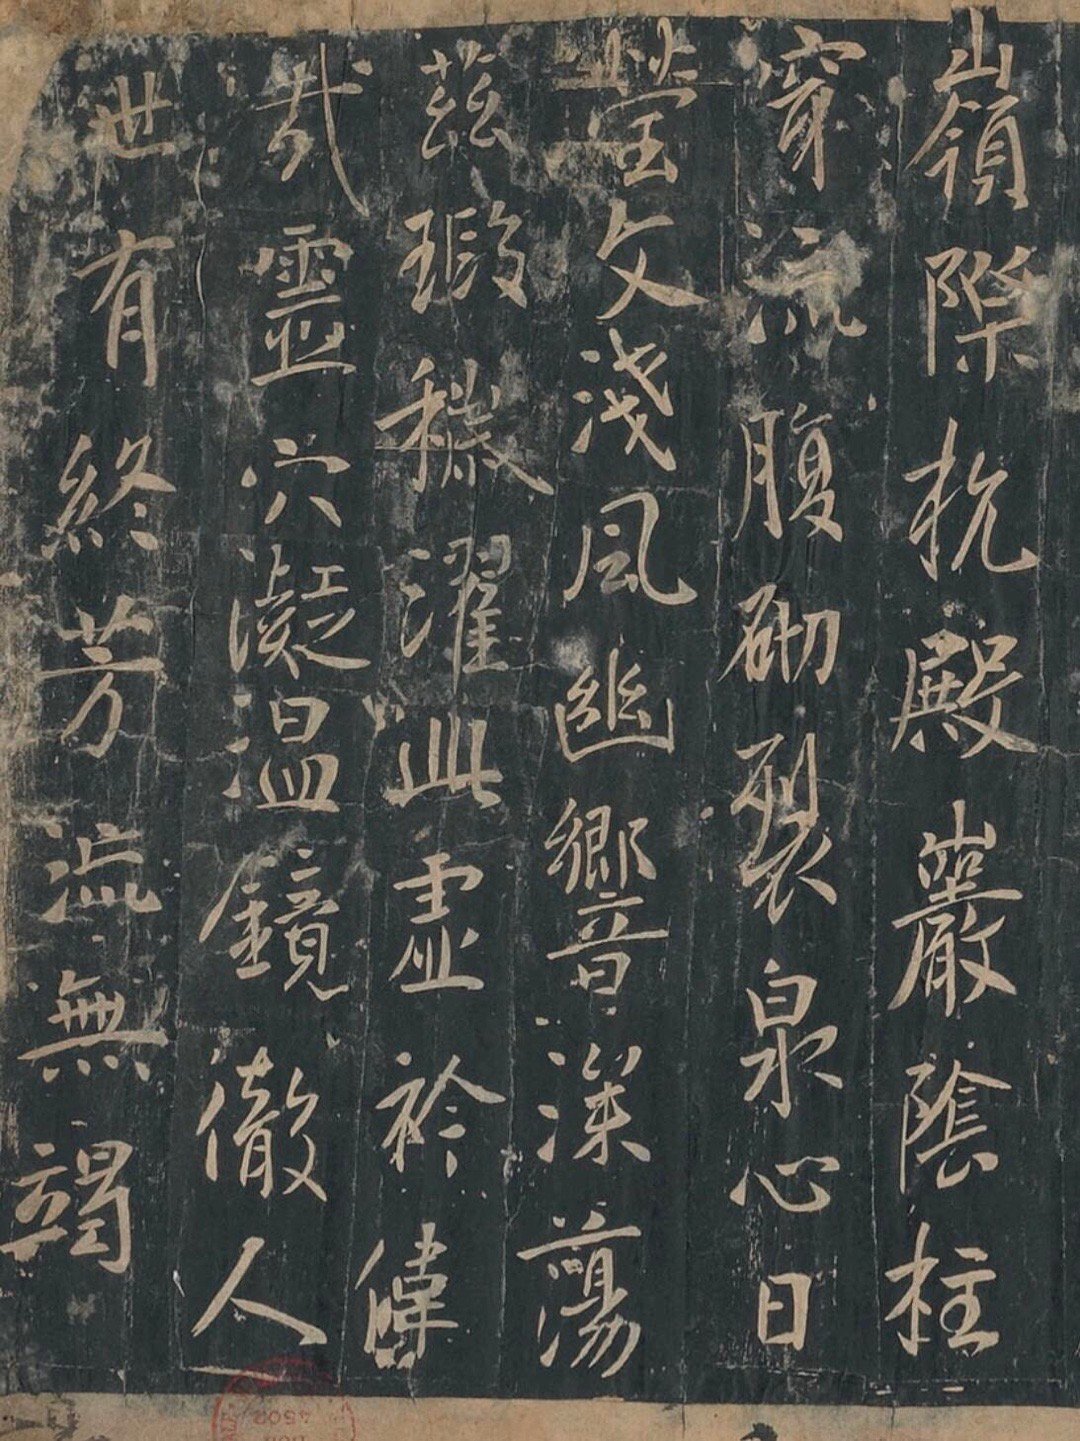 嶺際抗殿巖陰柱
穿流腹砌裂泉心日
瑩文淺風幽響深蕩
茲瑕穢濯此虛衿偉
哉靈穴凝溫鏡徹人
世有終芳流無竭
4502